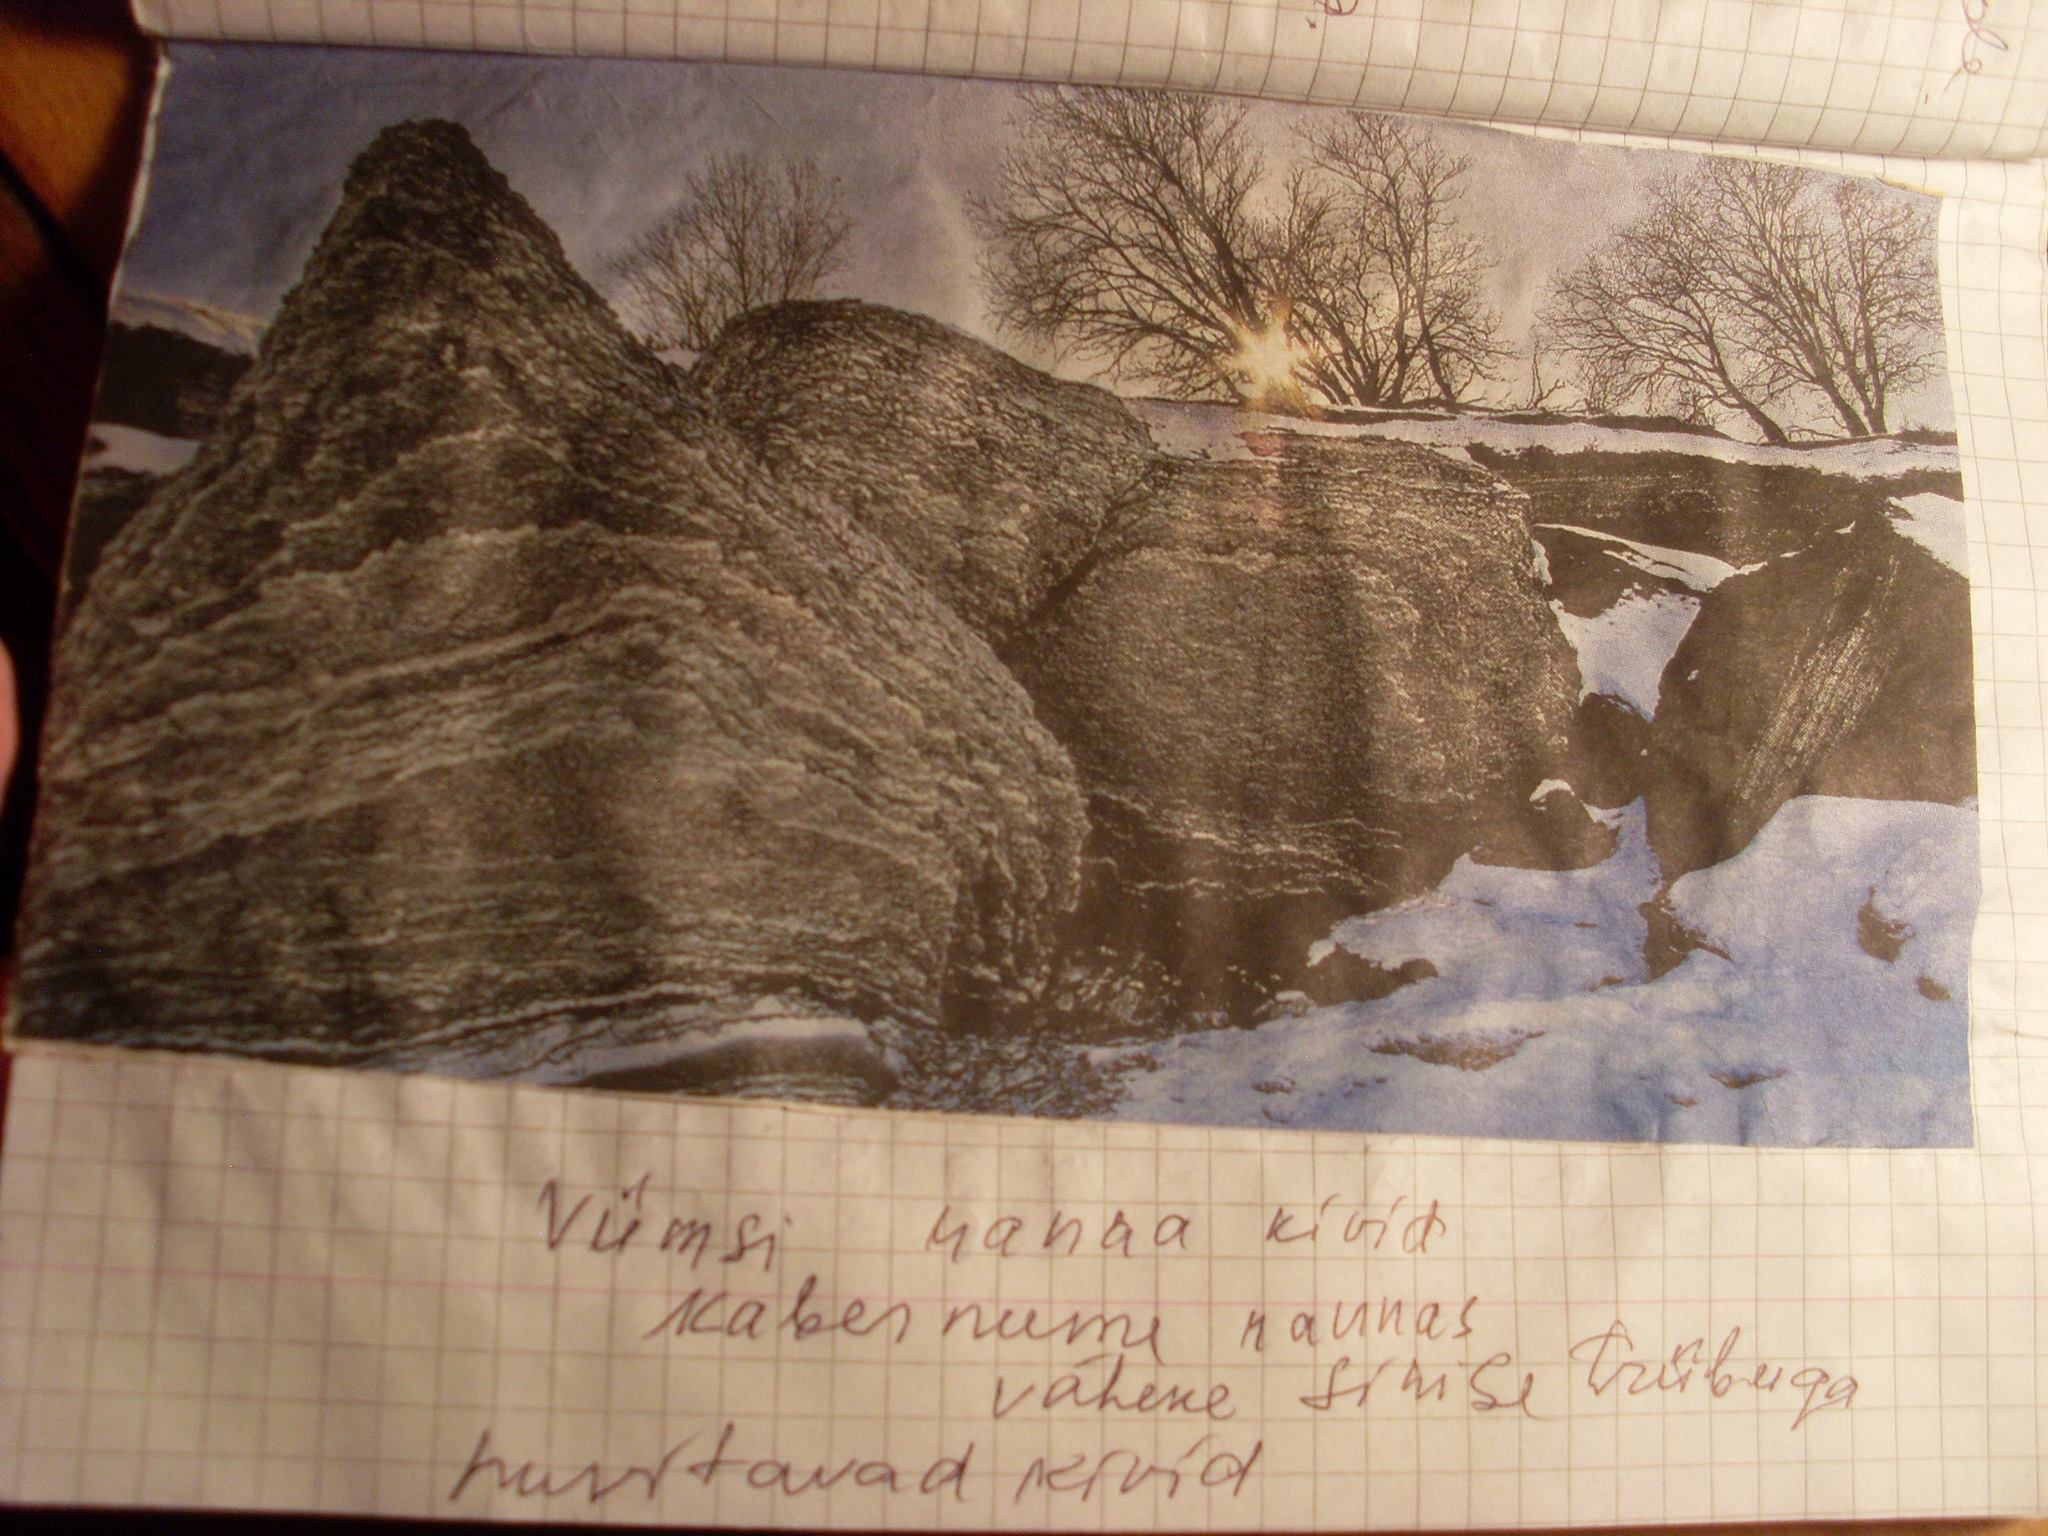 Viimsi ranna kivid
Kaberneeme rannas
vähene sinise triibuga
huvitavad kivid